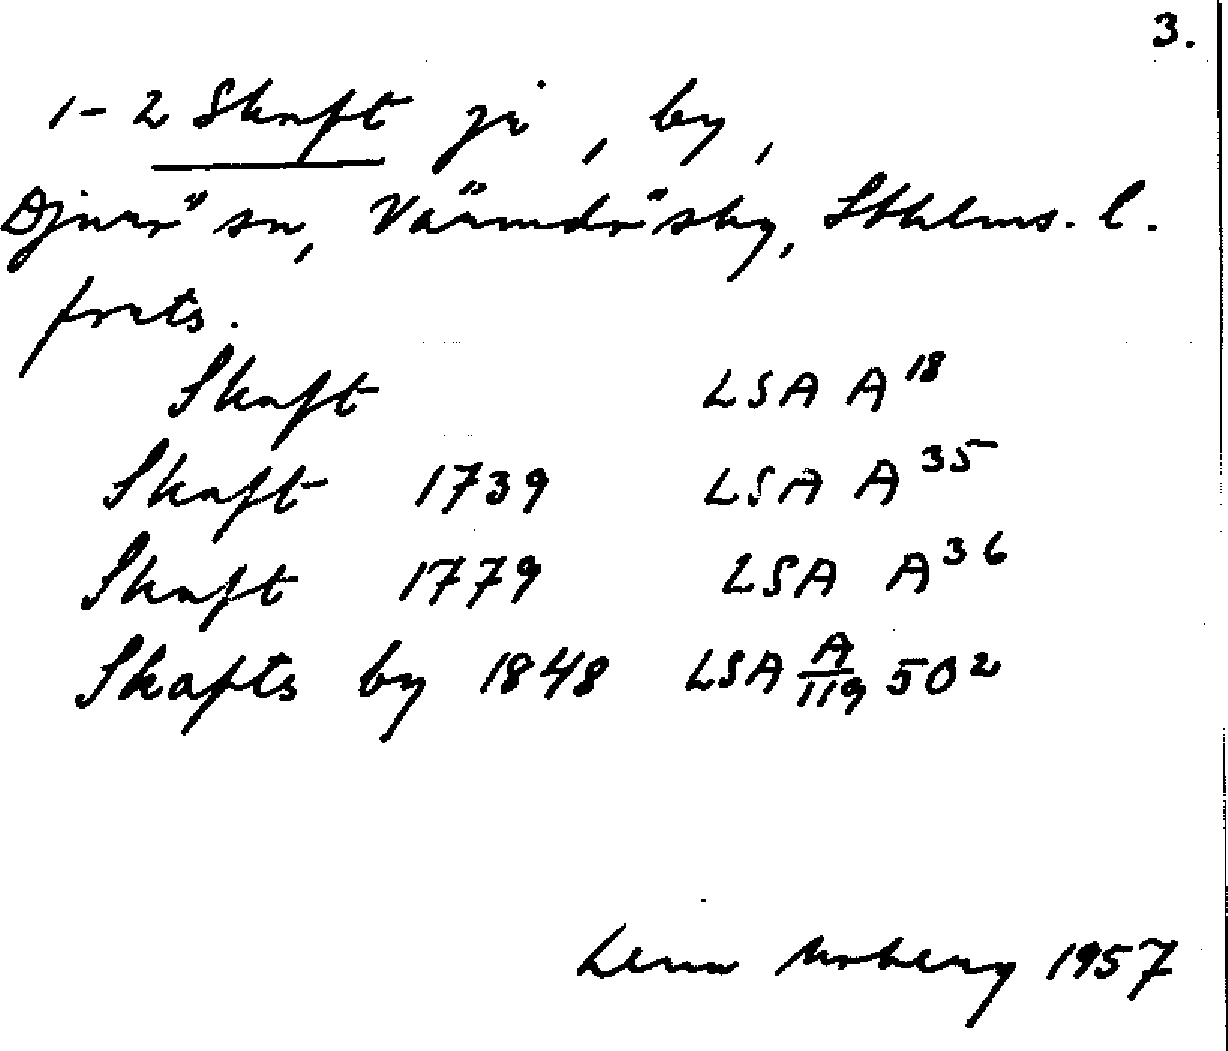 3.
1-2 Skaft ji, by,
Djurö sn, Värmdö skg, Sthlms. l.
forts.
Skaft LSA A 18
Skaft 1739 LSA A 35
Skaft 1779 LSA A 36
Skafts by 1848 LSA A/119 50 2
Lena Moberg 1957